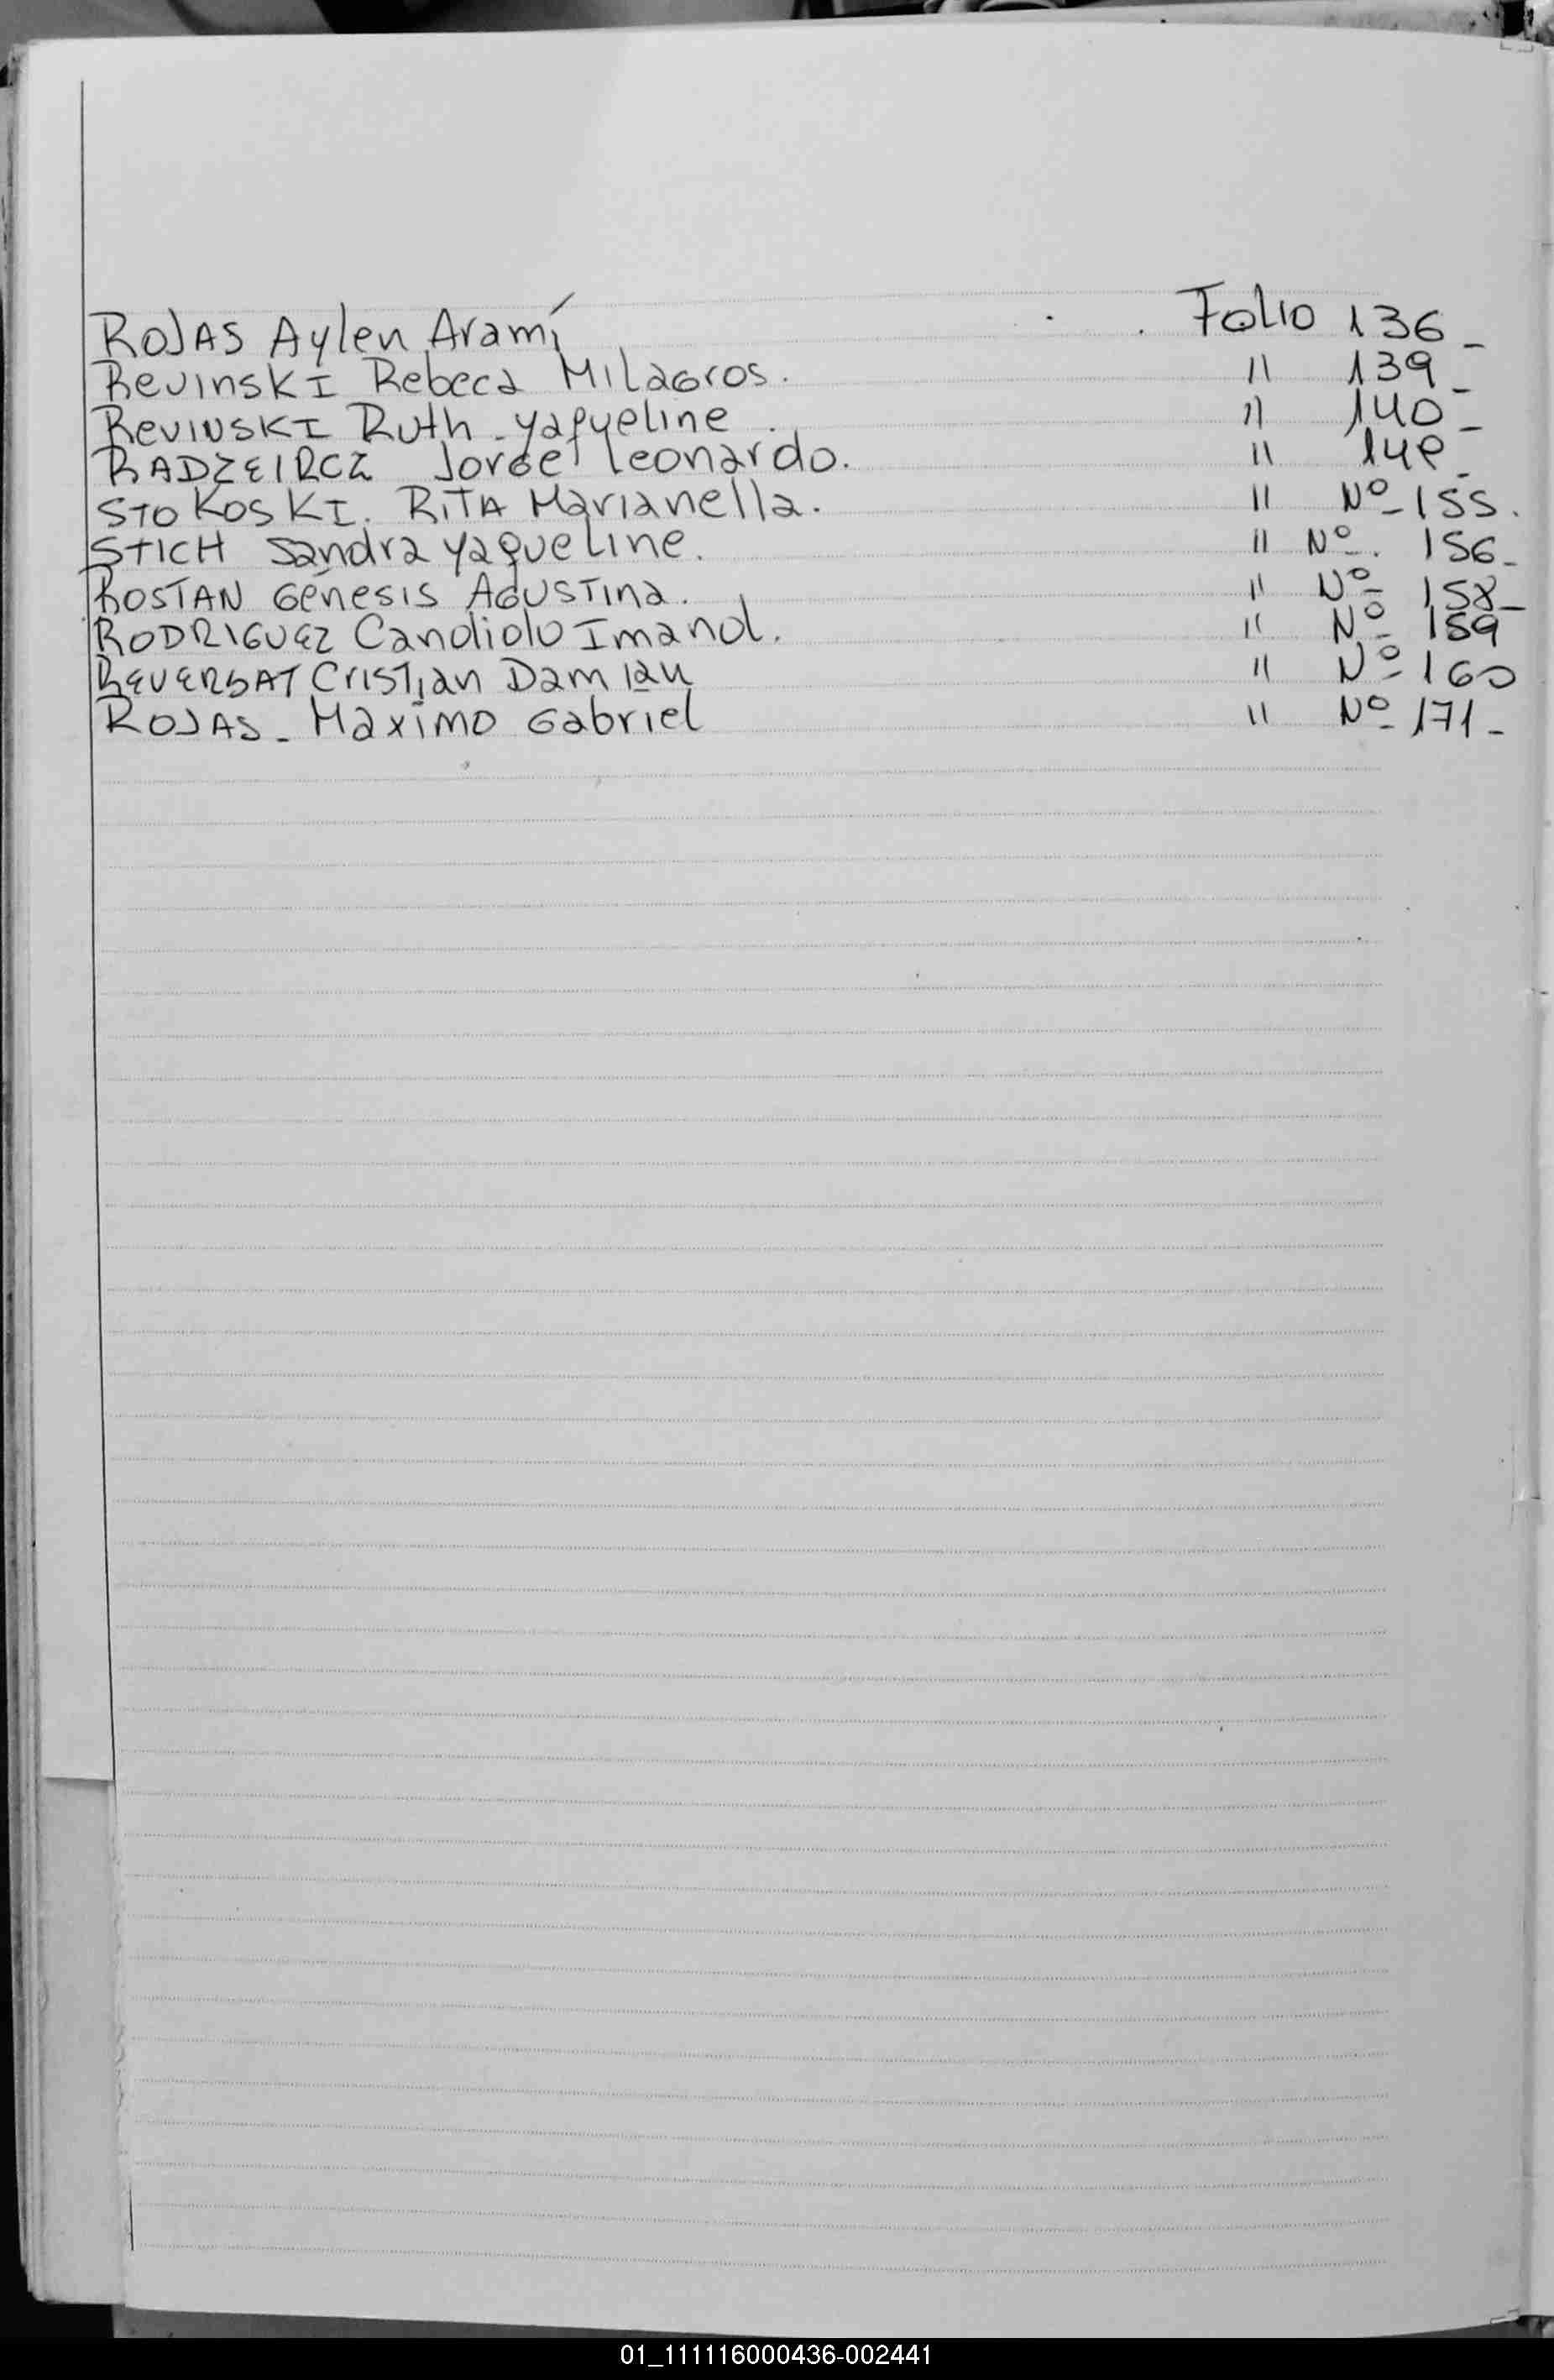 ROJAS Aylen Aramí . . Folio 136 -
RevinskI Rebeca Milagros. " 139 -
RevINSKI Ruth - yaqueline . " 140 -
RADZEIRCZ Jorge Leonardo. " 149 -
STOKOSKI. RITA Marianella. " Nº 155.
STICH Sandra yaqueline. " Nº. 156 -
ROSTAN Génesis AGUSTina. " Nº 158 -
RODRIGUEZ Candiolo Imanol. " Nº 159
REVERSAT Cristian Damian " Nº 160
ROJAS - Maximo Gabriel " Nº 171 -
01_111116000436-002441